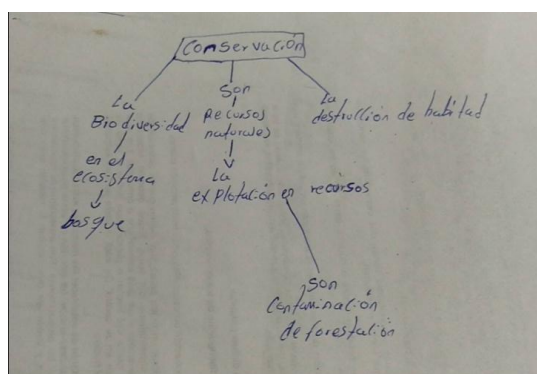 Conservación
La
Biodiversidad
en el
ecosistema
bosque
Son
Recursos
naturales
La
explotación en recursos
Son
Contaminación
deforestación
La
destrucción de habitad